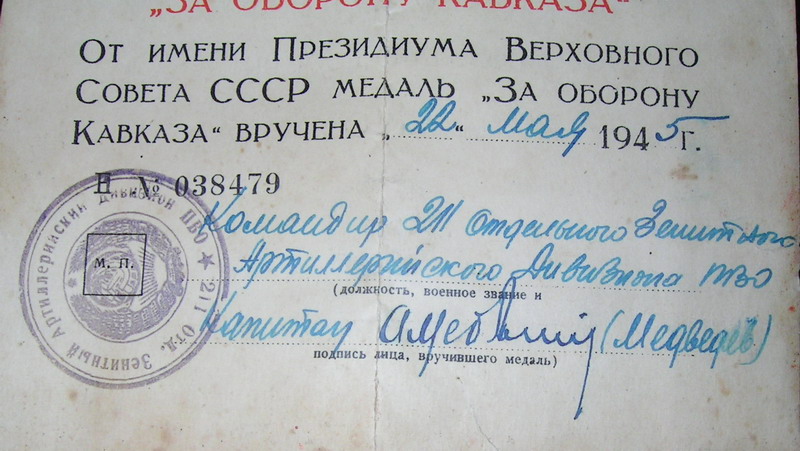 „ЗА ОБОРОНУ КАВКАЗА“
От имени Президиума Верховного
Совета СССР медаль „За оборону
Кавказа“ вручена „22“ мая 1945 г.
Н № 038479
Командир 211 отдельного Зенитного
Артиллерийского Дивизиона ПВО
(должность, военное звание и
Капитан (Медведев)
подпись лица, вручившего медаль)
М. П.
211 Отд. Зенитный Артиллерийский Дивизион ПВО ★